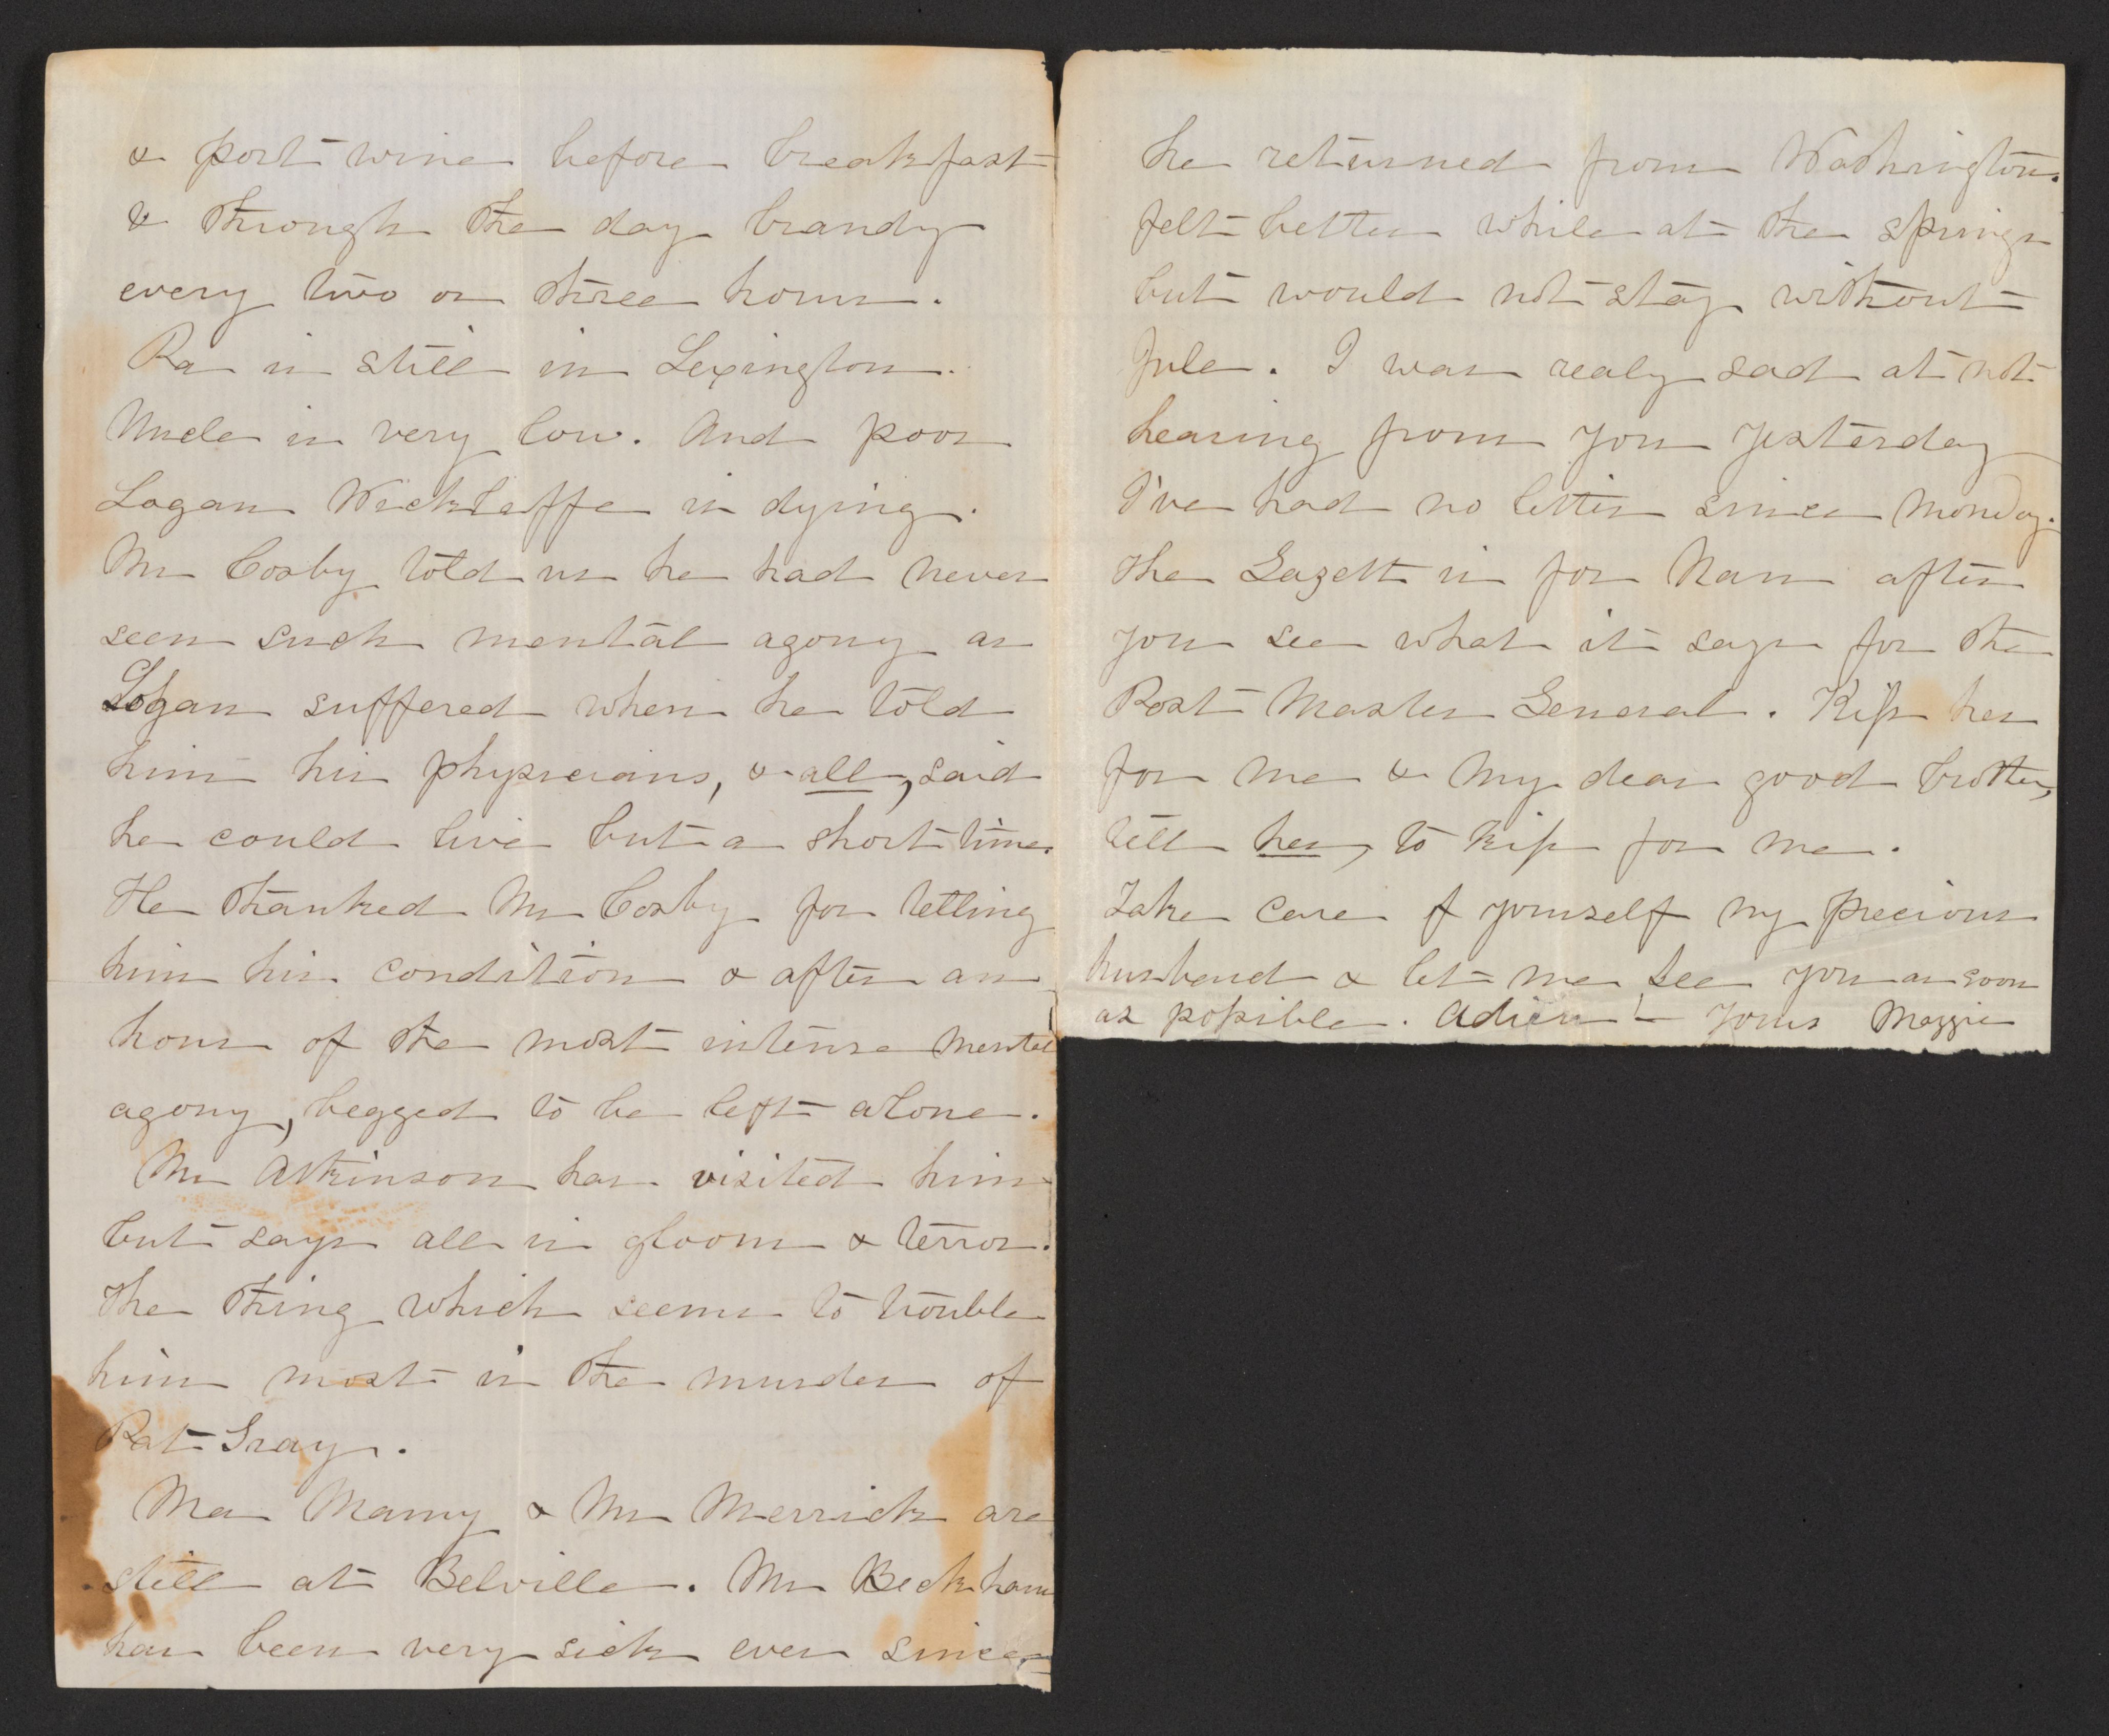 & port wine before breakfast
& through the day brandy
every two or three hours.
Pa is still in Lexington.
Uncle is very low. And poor
Logan Wickleffe is dying.
Mr Cosby told us he had never
seen such mental agony as
Logan suffered when he told
him his physicians, & all, said
he could live but a short time.
He thanked Mr Cosby for telling
him his condition & after an
hour of the most intense mental
agony, begged to be left alone.
Mr Atkinson has visited him
but says all is gloom & terror.
The thing which seems to trouble
him most is the murder of
Pat Gray.
Ma Mamy & Mr Merrick are
still at Belville. Mr Beckham
has been very sick ever since
he returned from Washington.
felt better while at the springs
but would not stay without
Jule. I was realy sad at not
hearing from you yesterday
I've had no letter since Monday.
The Gazett is for Nan after
you see what it says for the
Post Master General. Kiss her
for me & my dear good brother,
tell her, to kiss for me.
Take care of yourself my precious
husband & let me see you as soon
as possible. Adieu! Yours Maggie